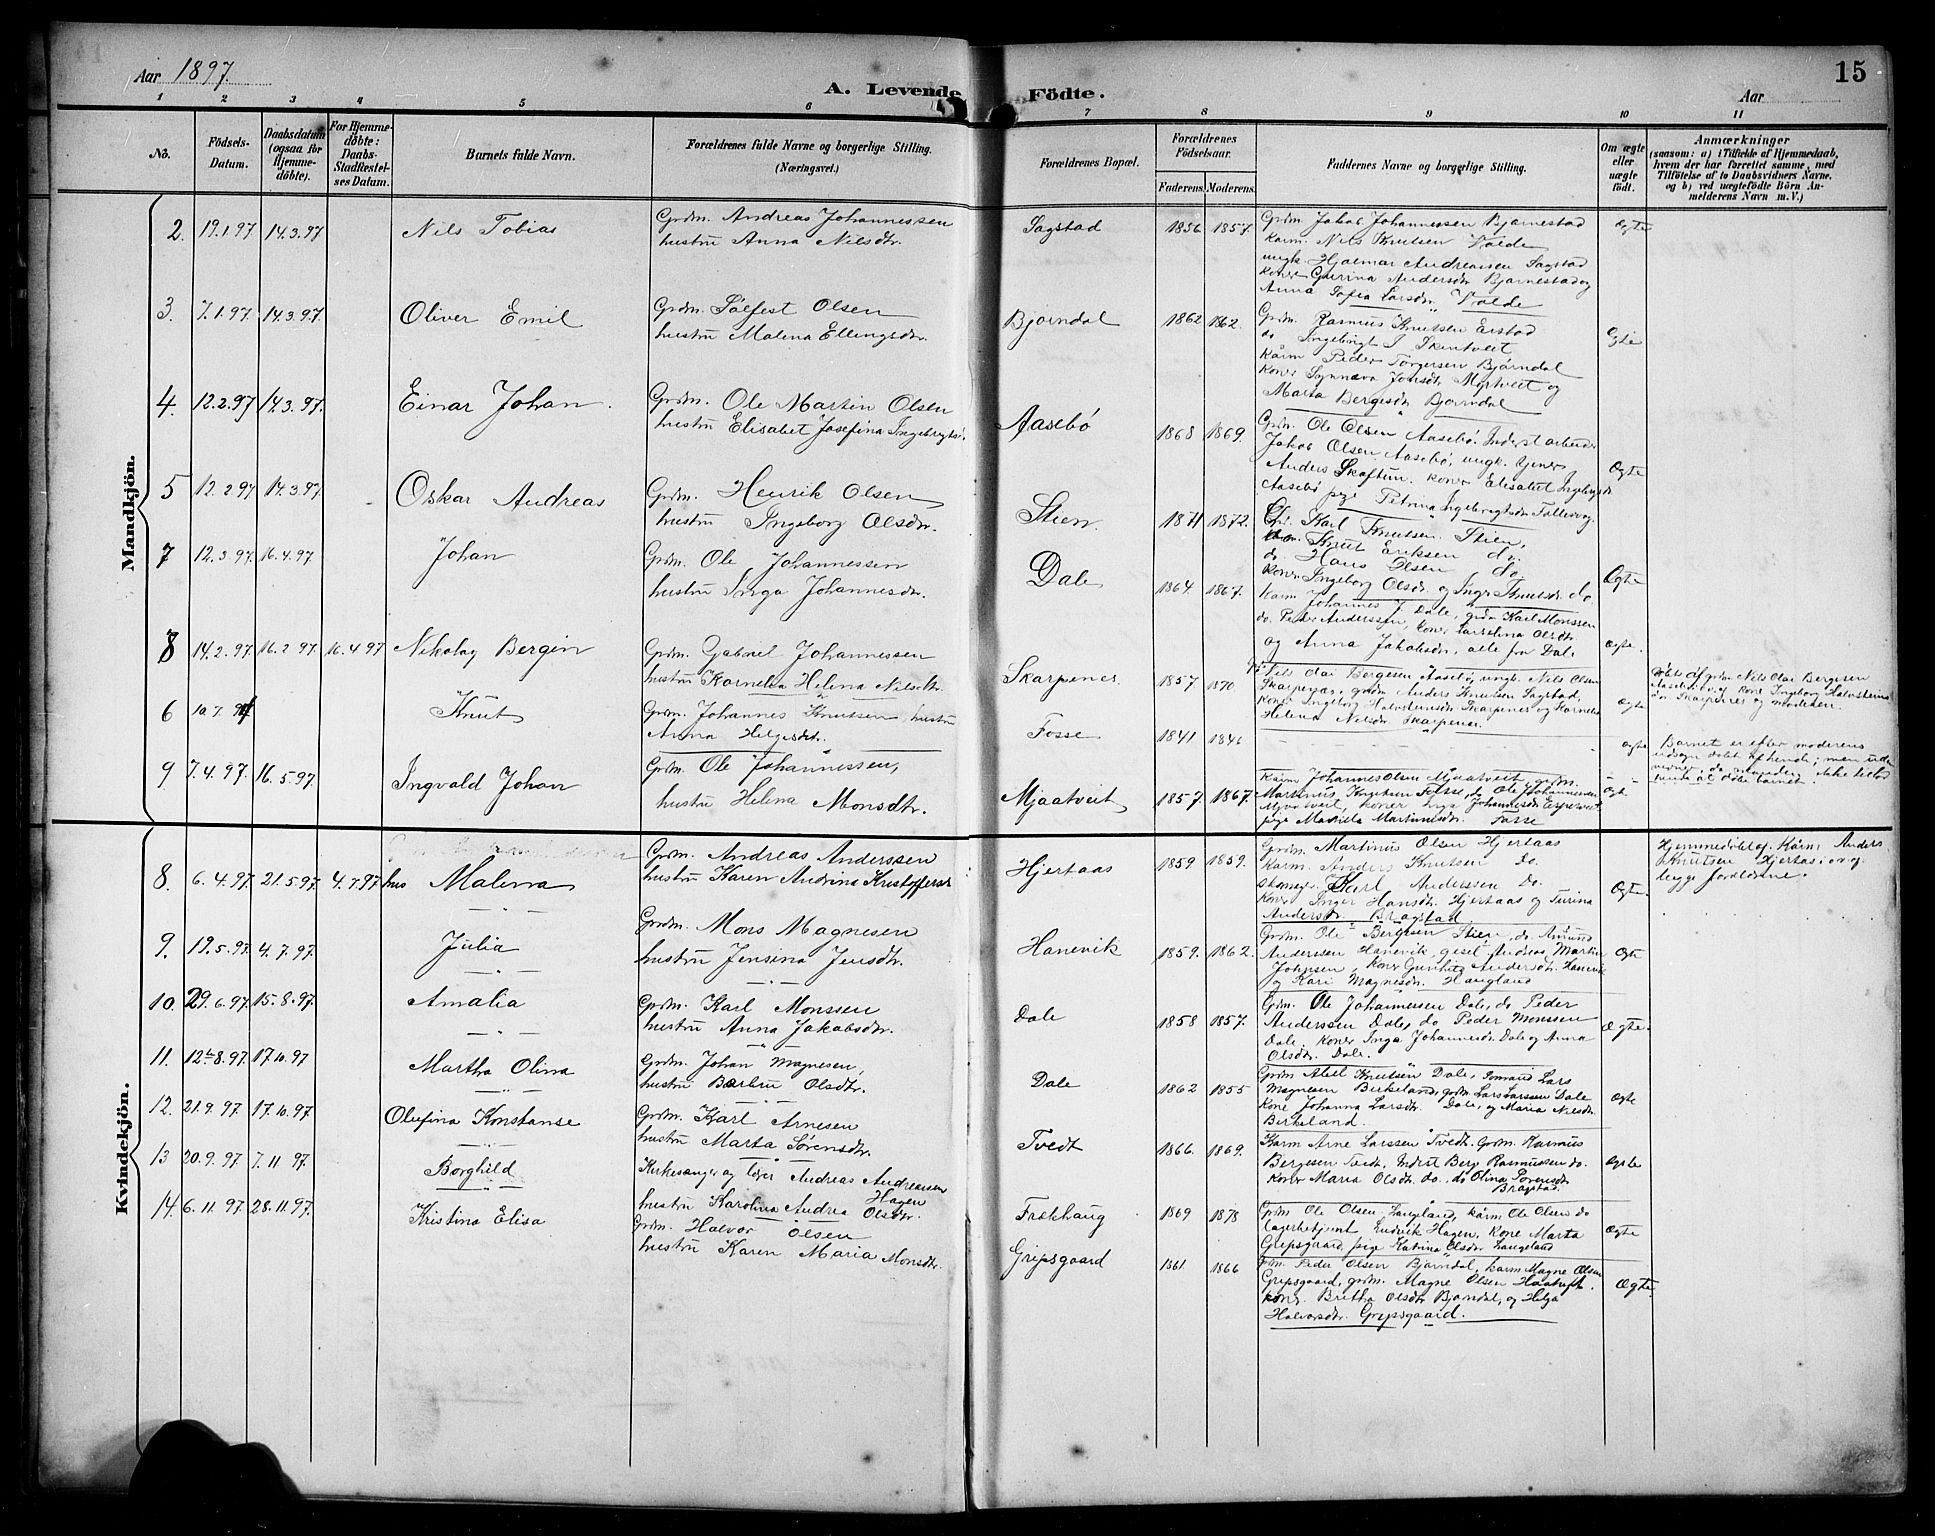 Aar 1897.
A. Levende Födte.
15
Aar
1 2 3 4 5 6 7 8 9 10 11
No.
Födsels-Datum.
Daabsdatum (ogsaa for Hjemme-döbte).
For Hjemme-döbte: Daabs-Stadfæstel-ses Datum.
Barnets fulde Navn.
Forældrenes fulde Navne og borgerlige Stilling.
(Næringsvei.)
Forældrenes Bopæl.
Forældrenes Födselsaar.
Faderens. Moderens.
Faddernes Navne og borgerlige Stilling.
Om ægte eller uægte födt.
Anmærkninger
(saasom: a) i Tilfælde af Hjemmedaab, hvem der har forrettet samme, med Tilföielse af to Daabsvidners Navne, og b) ved uegtefödte Börn Anmelderens Navn m. V.)
Mandkjön.
2. 19.1.97 14.3.97 Nils Tobias
Grdm. Andreas Johannessen
hustru Anna Nilsdtr.
Sagstad 1856 1857.
Grdm. Jakob Johannessen Bjørnestad
Karm. Nils Knutsen Valde
ungk. Hjalmar Andreassen Sagstad
koner Gurina Andersdtr Bjørnestad og
Anna Sofia Larsdtr. Valde
Ægte
3. 7.1.97. 14.3.97. Oliver Emil
Grdm. Sølfest Olsen
hustru Malena Ellingsdtr.
Bjørndal 1862 1862.
Grdm. Rasmus Knutsen Erstad
do Ingebrigt J. Skintveit
Kårm Peder Torgersen Bjørndal
Koner Synnæva Jonsdtr Myrtveit og
Marta Bergesdtr Bjørndal
Ægte
4. 12.2.97 14.3.97. Einar Johan.
Grdm. Ole Martin Olsen
hustru Elisabet Josefina Ingebrigtsd.
Aasebø 1868 1869.
Grdm. Ole Olsen Aasebø. Inderst arbeider
Jakob Olsen Aasebø, ungk. tjener
Anders Skaftun. koner Elisabet Ingebrigtsdr
Aasebø pige Petrina Ingebrigtsdtr
Ægte
5 12.2.97 14.3.97. Oskar Andreas
Grdm. Henrik Olsen
hustru Ingeborg Olsdtr.
Stien. 1871 1872.
Karl Knutsen Stien,
Knut Eriksen do.
do. Hans Olsen do.
koner Ingeborg Olsdtr. og Inger Knutsdtr. do.
Ægte
7 12.3.97. 16.4.97. Johan
Grdm. Ole Johannessen
hustru Inga Johannesdtr.
Dale 1864. 1867.
Karm Johannes J. Dale, grdm Karl Monssen
do. Peder Anderssen, koner Olsdtr
og Anna Jakobsdtr, alle fra Dale
Ægte.
8 14.2.97. 16.2.97. 16.4.97 Nikolay Bergin
Grdm. Gabriel Johannessen
hustru Kornelia Helena Nilsdtr.
Skarpenes 1857 1870.
Nils Olai Bergesen Aasebø, ungk. Nils Olsen
Skarpenes, grdm Anders Knutsen Sagstad,
koner Ingeborg Halvsteinsdtr Skarpenes og Kornelia
Helena Nilsdtr Skarpenes.
Ægte
Døbt af grdm Nils Olai Bergesen
Aasebø og kone Ingeborg Halvsteinsd.
do. Skarpenes og moderen.
6 Knut
Grdm. Johannes Knutsen, hustru
Anna Helgesdtr.
Fosse 1841 1846
Ægte
Barnet er efter moderens
udsagn døbt
9 7.4.97. 16.5.97. Ingvald Johan
Grdm. Ole Johannessen,
hustru Helena Monsdtr.
Mjaatveit 1857. 1867.
Karm Johannes Olsen Mjaatveit, grdm.
Martinus Knutsen Fosse, do Ole Johannessen
Mjaatveit, koner Inga Johannesdtr Espetveit
pige Martinusdtr. Fosse
Ægte
Kvindekjön.
8. 6.4.97. 21.5.97. 4.7.97 hus Malena
Grdm. Andreas Anderssen
hustru Karen Andrina Kristoffersd
Hjertaas 1859 1859.
Grdm. Martinus Olsen Hjertaas
Karm. Anders Knutsen Do.
Skomager Karl Anderssen Do.
Koner Inger Hansdtr. Hjertaas og Turina
Andersdr Bragstad.
Ægte
Hjemmedøbt af Kårm. Anders
Knutsen Hjertas i overv.
begge forældrene.
9. 19.5.97. 4.7.97. Julia
Grdm. Mons Magnesen
hustru Jensina Jensdtr.
Hanevik 1859. 1862.
Grdm. Ole Bergesen Stien, do. Amund
Anderssen Hanevik, gesel Andreas Martin
Johnsen, koner Gunhild Andersdtr. Hanevik
og Kari Magnesdtr. Haugland
Ægte
10. 29.6.97. 15.8.97. Amalia
Grdm. Karl Monssen
hustru Anna Jakobsdtr.
Dale 1858 1857.
Grdm. Ole Johannessen Dale, do Peder
Anderssen Dale, do Peder Monssen
Dale. koner Inga Johannesdtr Dale og Anna
Olsdtr. Dale.
Ægte
11. 12.8.97. 17.10.97 Martha Olina
Grdm. Johan Magnesen,
hustru Barbru Olsdtr.
Dale 1862 1855
Grdm Abel Knutsen Dale, Lars
Magnesen Birkeland, grdm Lars Larssen Dale
Kone Johanna Larsdtr. Dale, og Maria Nilsdtr.
Birkeland.
Ægte
12. 21.9.97. 17.10.97. Olufina Konstanse
Grdm. Karl Arnesen
hustru Marta Sørensdtr.
Tvedt 1866. 1869.
Karm Arne Larssen Tvedt. grdm. Rasmus
Bergesen Tvedt, Inderst Berg Rasmussen do.
Koner Maria Olsdtr do., do Olina Sørensdtr
Bragstad.
Ægte
13 20.9.97. 7.11.97. Borghild
Kirkesanger og lærer Andreas Andreassen
Hagen
hustru Karolina Andrea Olsdtr.
Frekhaug 1869 1878
Grdm Ole Olsen Langeland, kårm Ole Olsen do
Lagerbetjent Ludvik Hagen. Kone Marta
Gripsgaard, pige Katrina Olsdtr Langeland
Ægte
14. 6.11.97. 28.11.97. Kristina Elisa
Grdm. Halvor Olsen
hustru Karen Maria Monsdtr.
Gripsgaard 1861. 1866
Grdm. Peder Olsen Bjørndal, karm. Magne Olsen
Gripsgaard, grdm. Magne Olsen
Koner Britha Olsdtr Bjørndal, og Helga
Halvorsdtr. Gripsgaard.
Ægte.